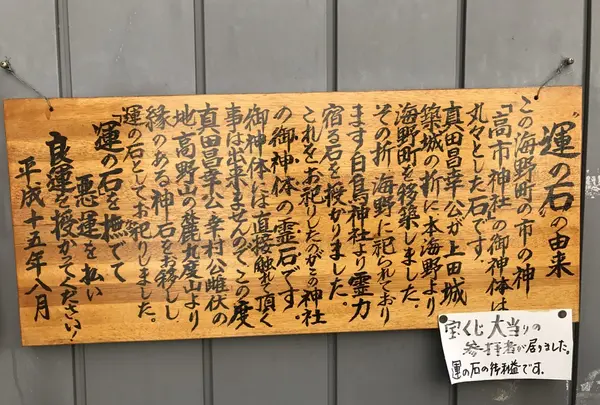 "運の石"の由来
この海野町の市の神
「高市神社」の御神体は
丸々とした石です。
真田昌幸公が上田城
築城の折に本海野より
海野町を移築しました。
その折、海野に祀られており
ます白鳥神社より霊力
宿る石を授かりました。
これをお祀りしたのがこの神社
の御神体の霊石です。
御神体には直接触れて頂く
事は出来ませんので、この度
真田昌幸公、幸村公雌伏の
地、高野山の麓九度山より
縁のある神石をお移しし
運の石としてお祀りしました。
"運の石を撫でて
悪運を払い
良運を授かってください!
平成十五年八月
宝くじ大当りの
参拝者が居りました。
運の石の御利益です。